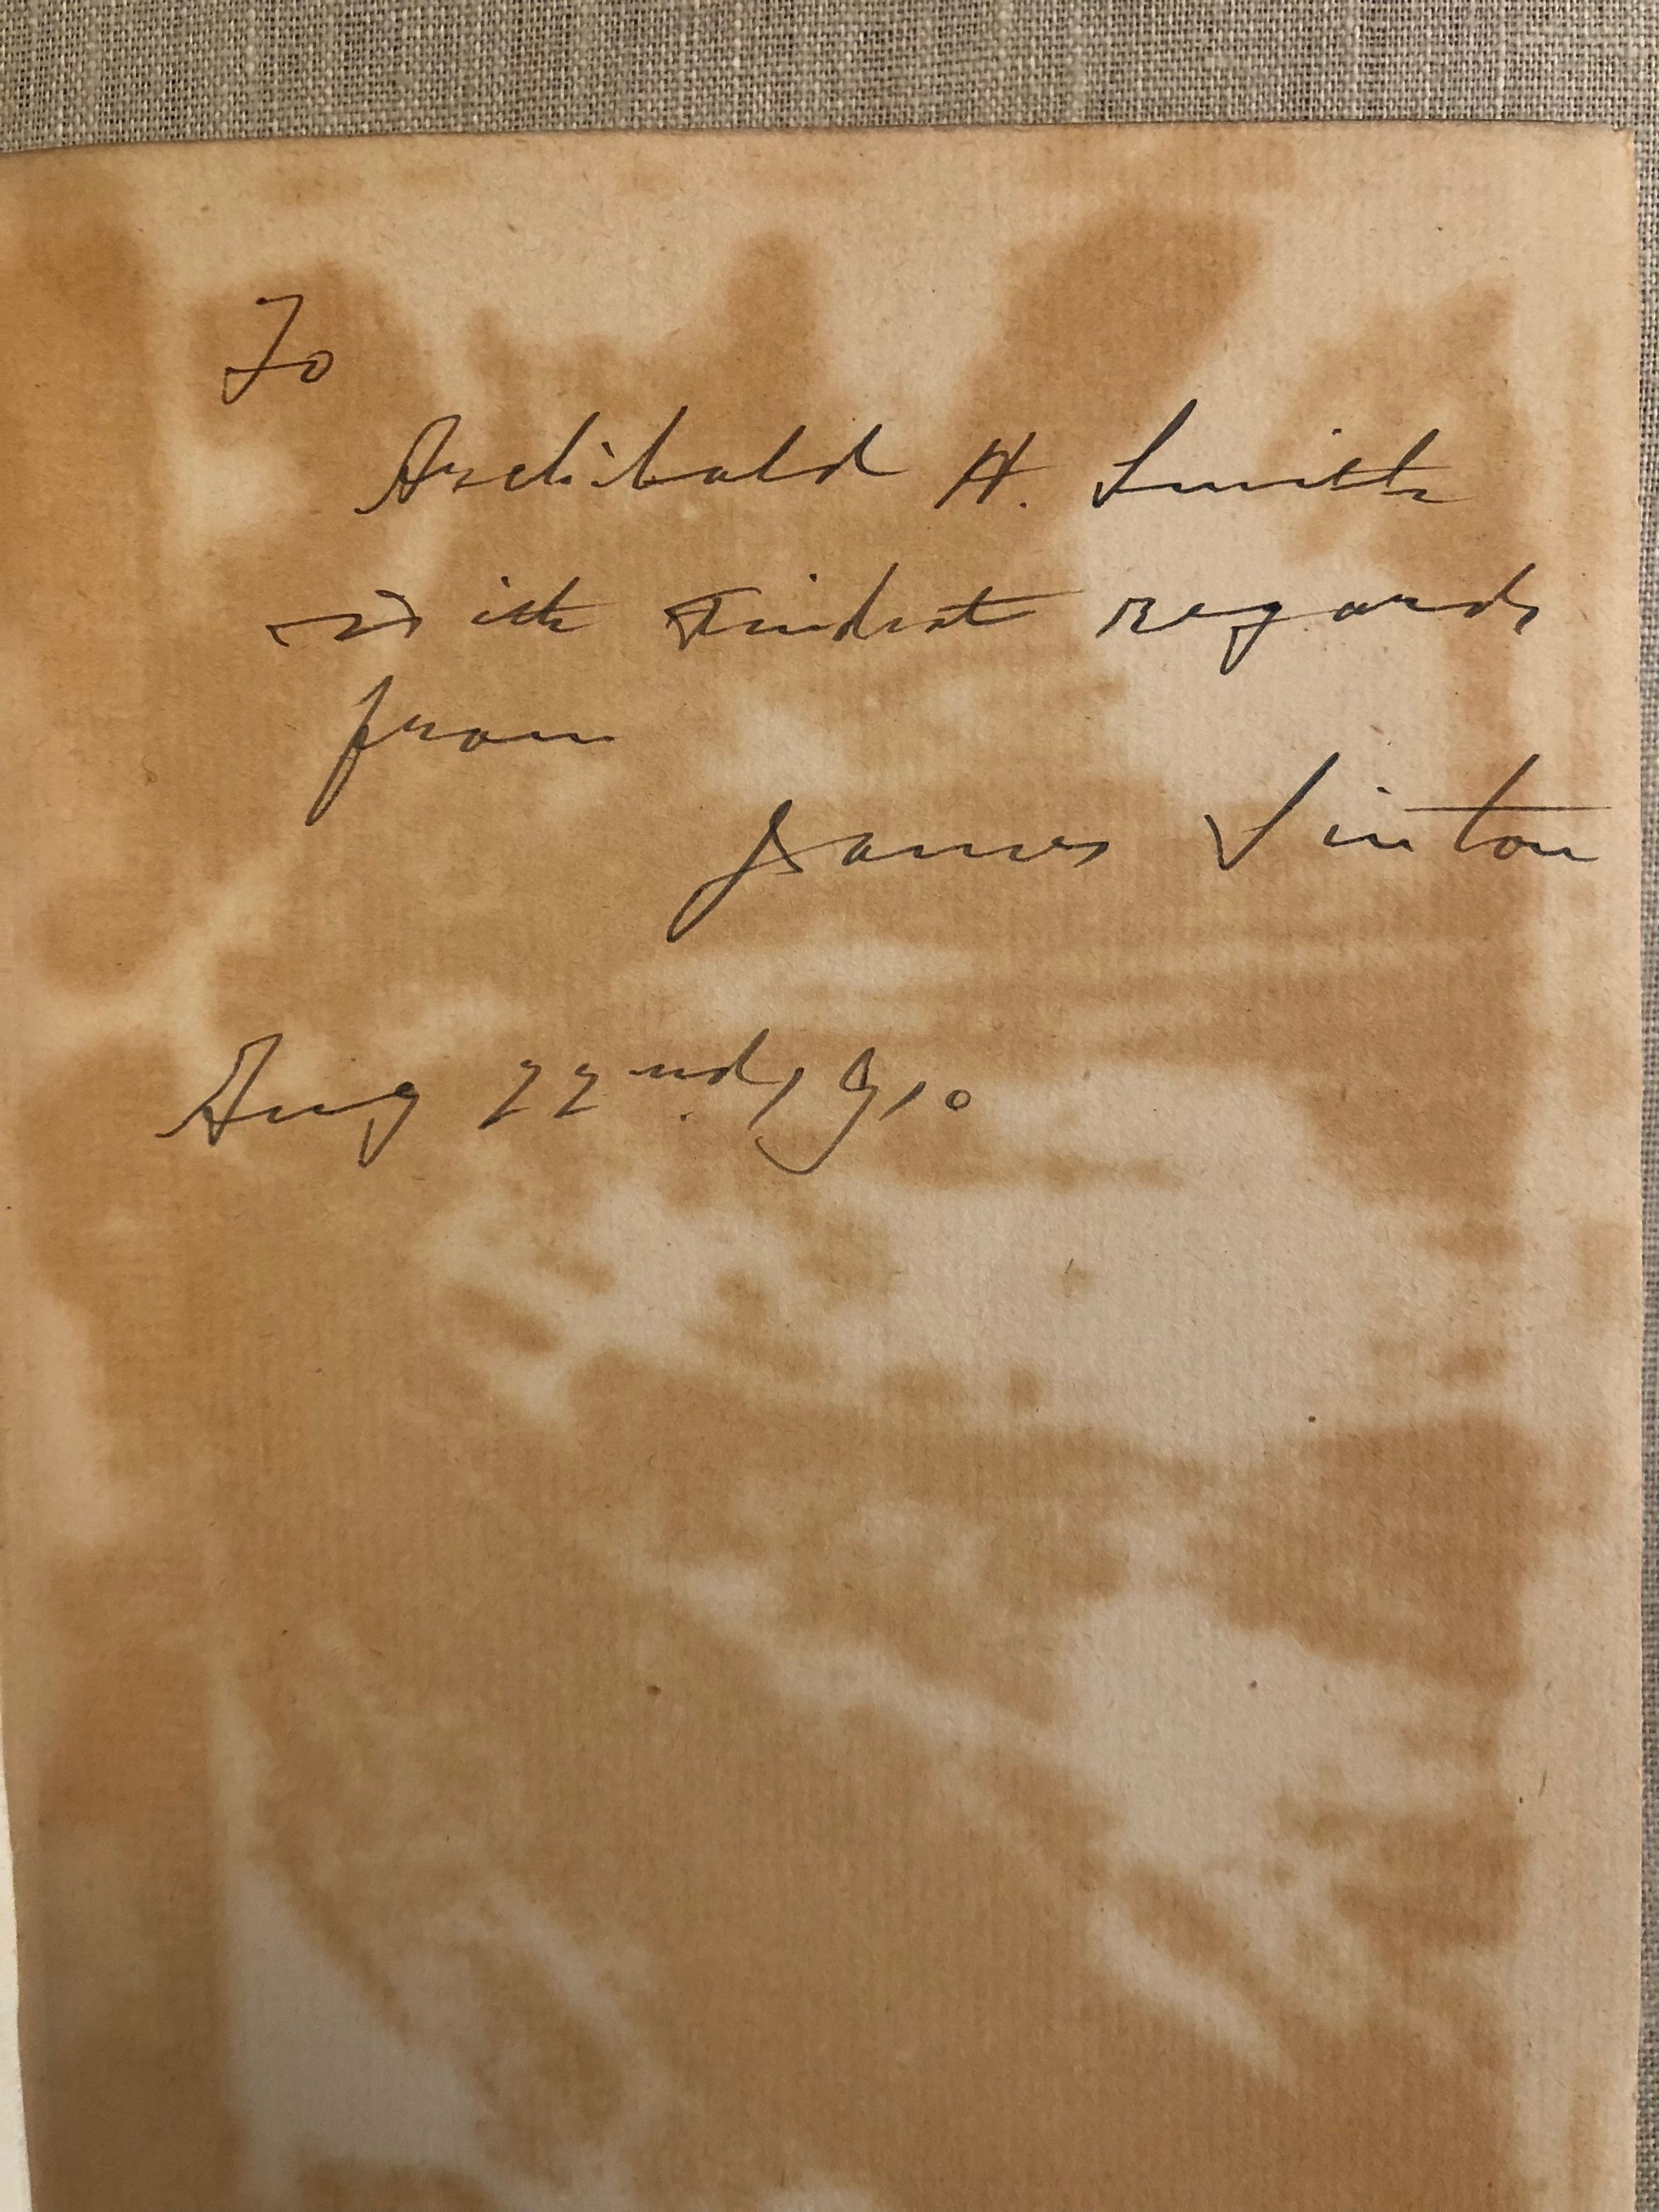 To
Archibald H. Smith
with kindest regards
from
James Linton
Aug 22nd, 1910